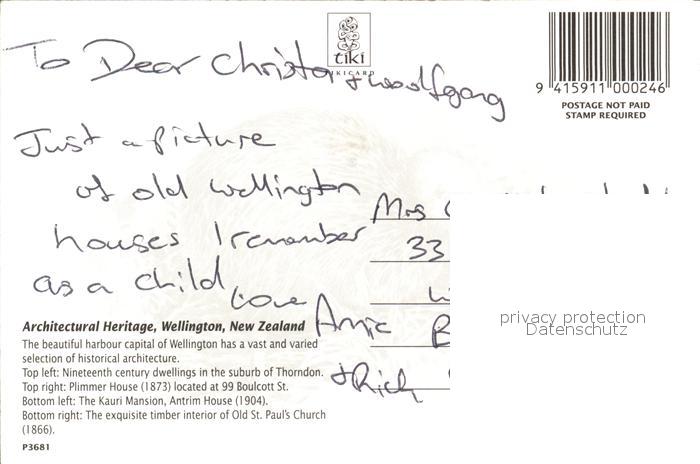 tiki
TIKICARD
9 415911 000246
POSTAGE NOT PAID
STAMP REQUIRED
To Dear Christa + Woolfgang
Just a picture
of old Wellington
houses I remember
as a child
Love
+ Rich
Mrs
33
Architectural Heritage, Wellington, New Zealand
The beautiful harbour capital of Wellington has a vast and varied
selection of historical architecture.
Top left: Nineteenth century dwellings in the suburb of Thorndon.
Top right: Plimmer House (1873) located at 99 Boulcott St.
Bottom left: The Kauri Mansion, Antrim House (1904).
Bottom right: The exquisite timber interior of Old St. Paul's Church
(1866).
P3681
privacy protection
Datenschutz